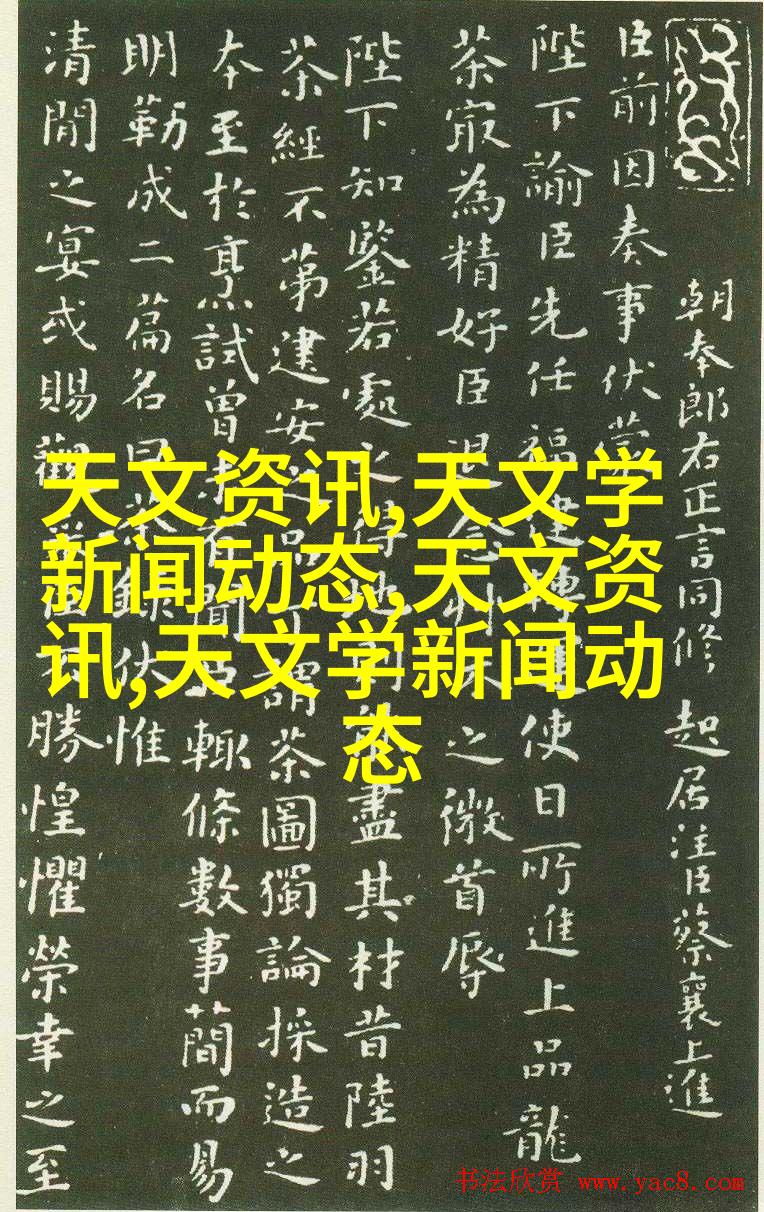 朝奉郎右正言同修起居注臣蔡襄上進
臣前因奏事伏蒙
陛下諭臣先任福建轉運使日所進上品龍
茶寂為精好臣退念木之微首辱
陛下知鑒若處之得地則盡其材昔陸羽
茶經不第建安之品丁謂茶圖獨論採造之
本至於烹試曾未有聞臣輒條數事簡而易
明勒成二篇名曰茶錄伏惟
清閒之宴或賜觀不勝惶懼榮幸之至
天文资讯,天文学
新闻动态,天文资
讯,天文学新闻动
态
书法欣赏 www.yac8.com